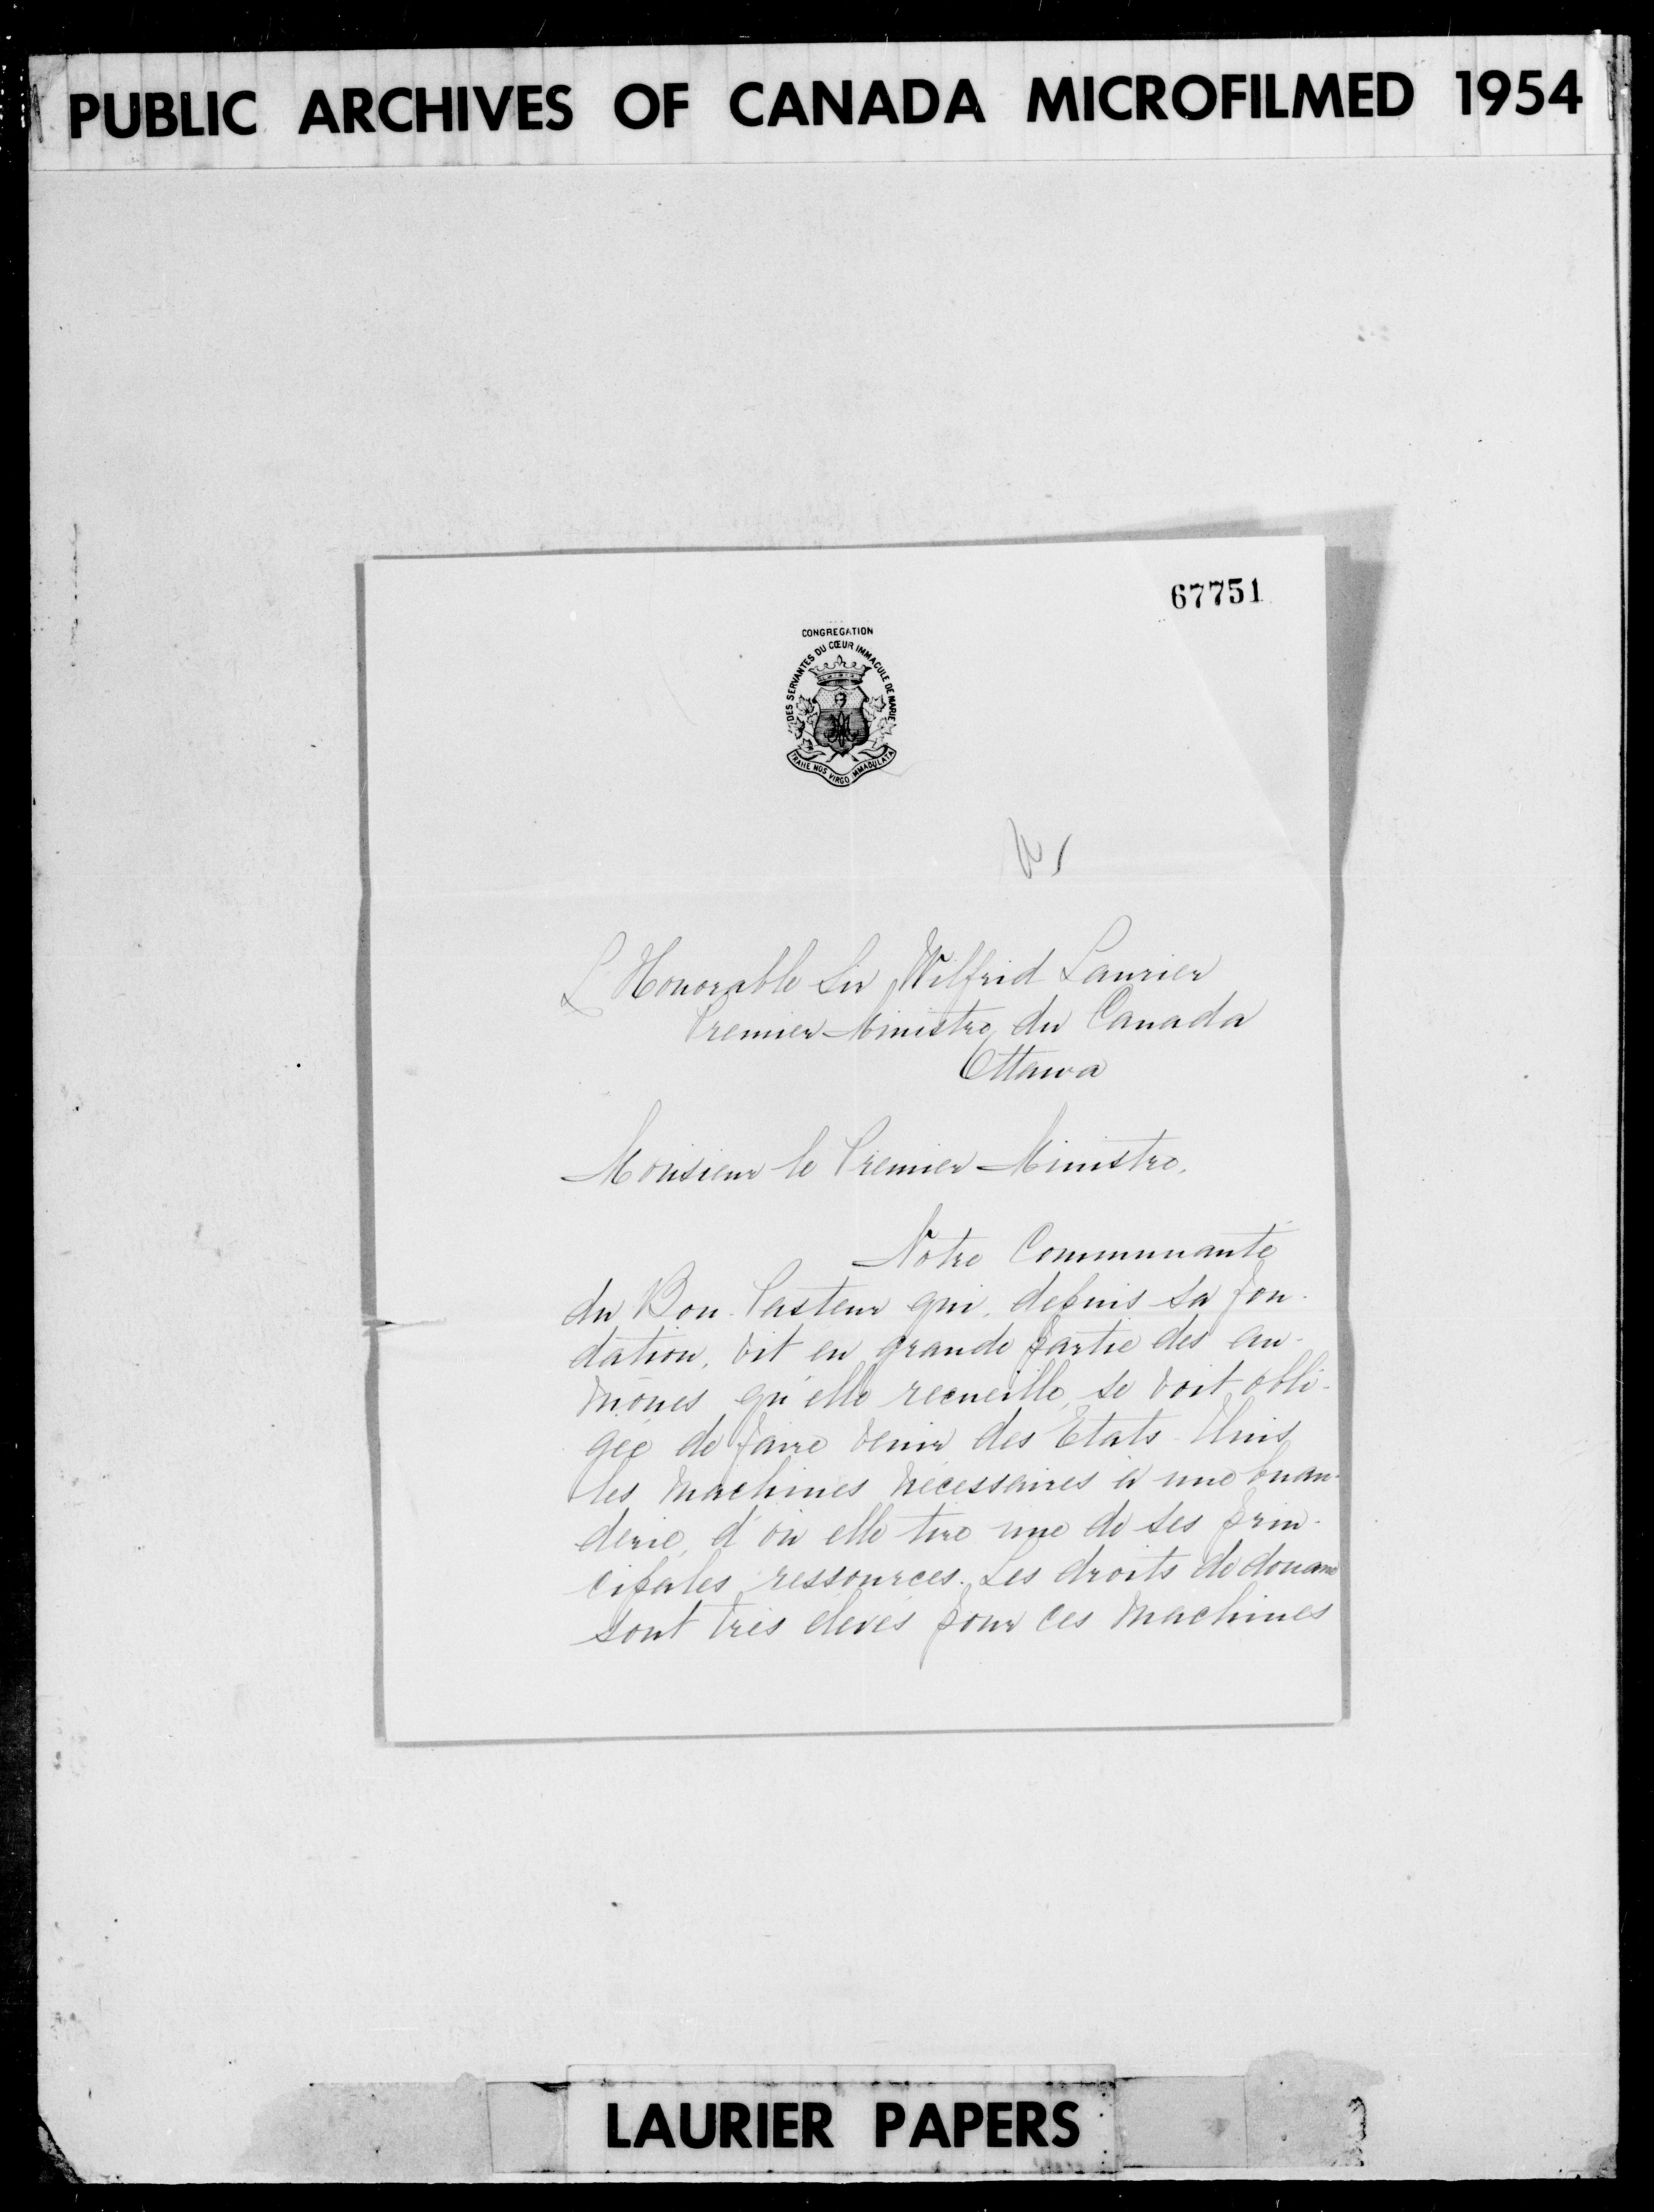 PUBLIC ARCHIVES OF CANADA MICROFILMED 1954
67751
CONGREGATION
DES SERVANTES DU CŒUR IMMACULE DE MARIE
TRAHE NOS VIRGO IMMACULATA
L'Honorable Sir Wilfrid Laurier
Premier Ministre du Canada
Ottawa
Monsieur le Premier Ministre,
Notre Communauté
du Bon-Pasteur qui, depuis sa fon-
dation, vit en grande partie des au-
mônes qu'elle recueille, se voit obli-
gée de faire venir des Etats-Unis
les machines nécessaires à une buan-
derie, d'où elle tire une de ses prin-
cipales ressources. Les droits de douane
sont très élevés pour ces machines
LAURIER PAPERS